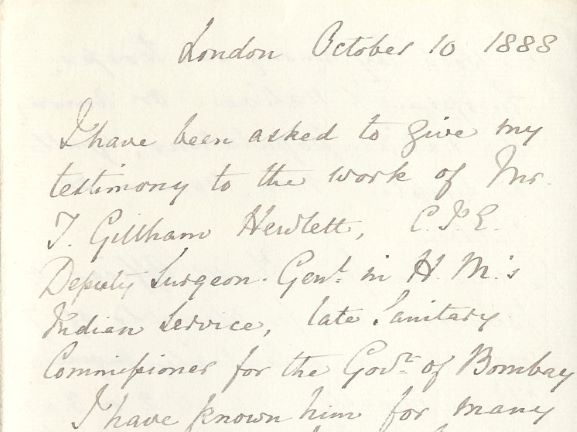 London October 10 1888
I have been asked to give my
testimony to the work of Mr.
T. Gillham Hewlett, C.I.E.
Deputy Surgeon-Genl. in H. M.'s
Indian Service, late Sanitary
Commissioner for the Govt. of Bombay
I have known him for many